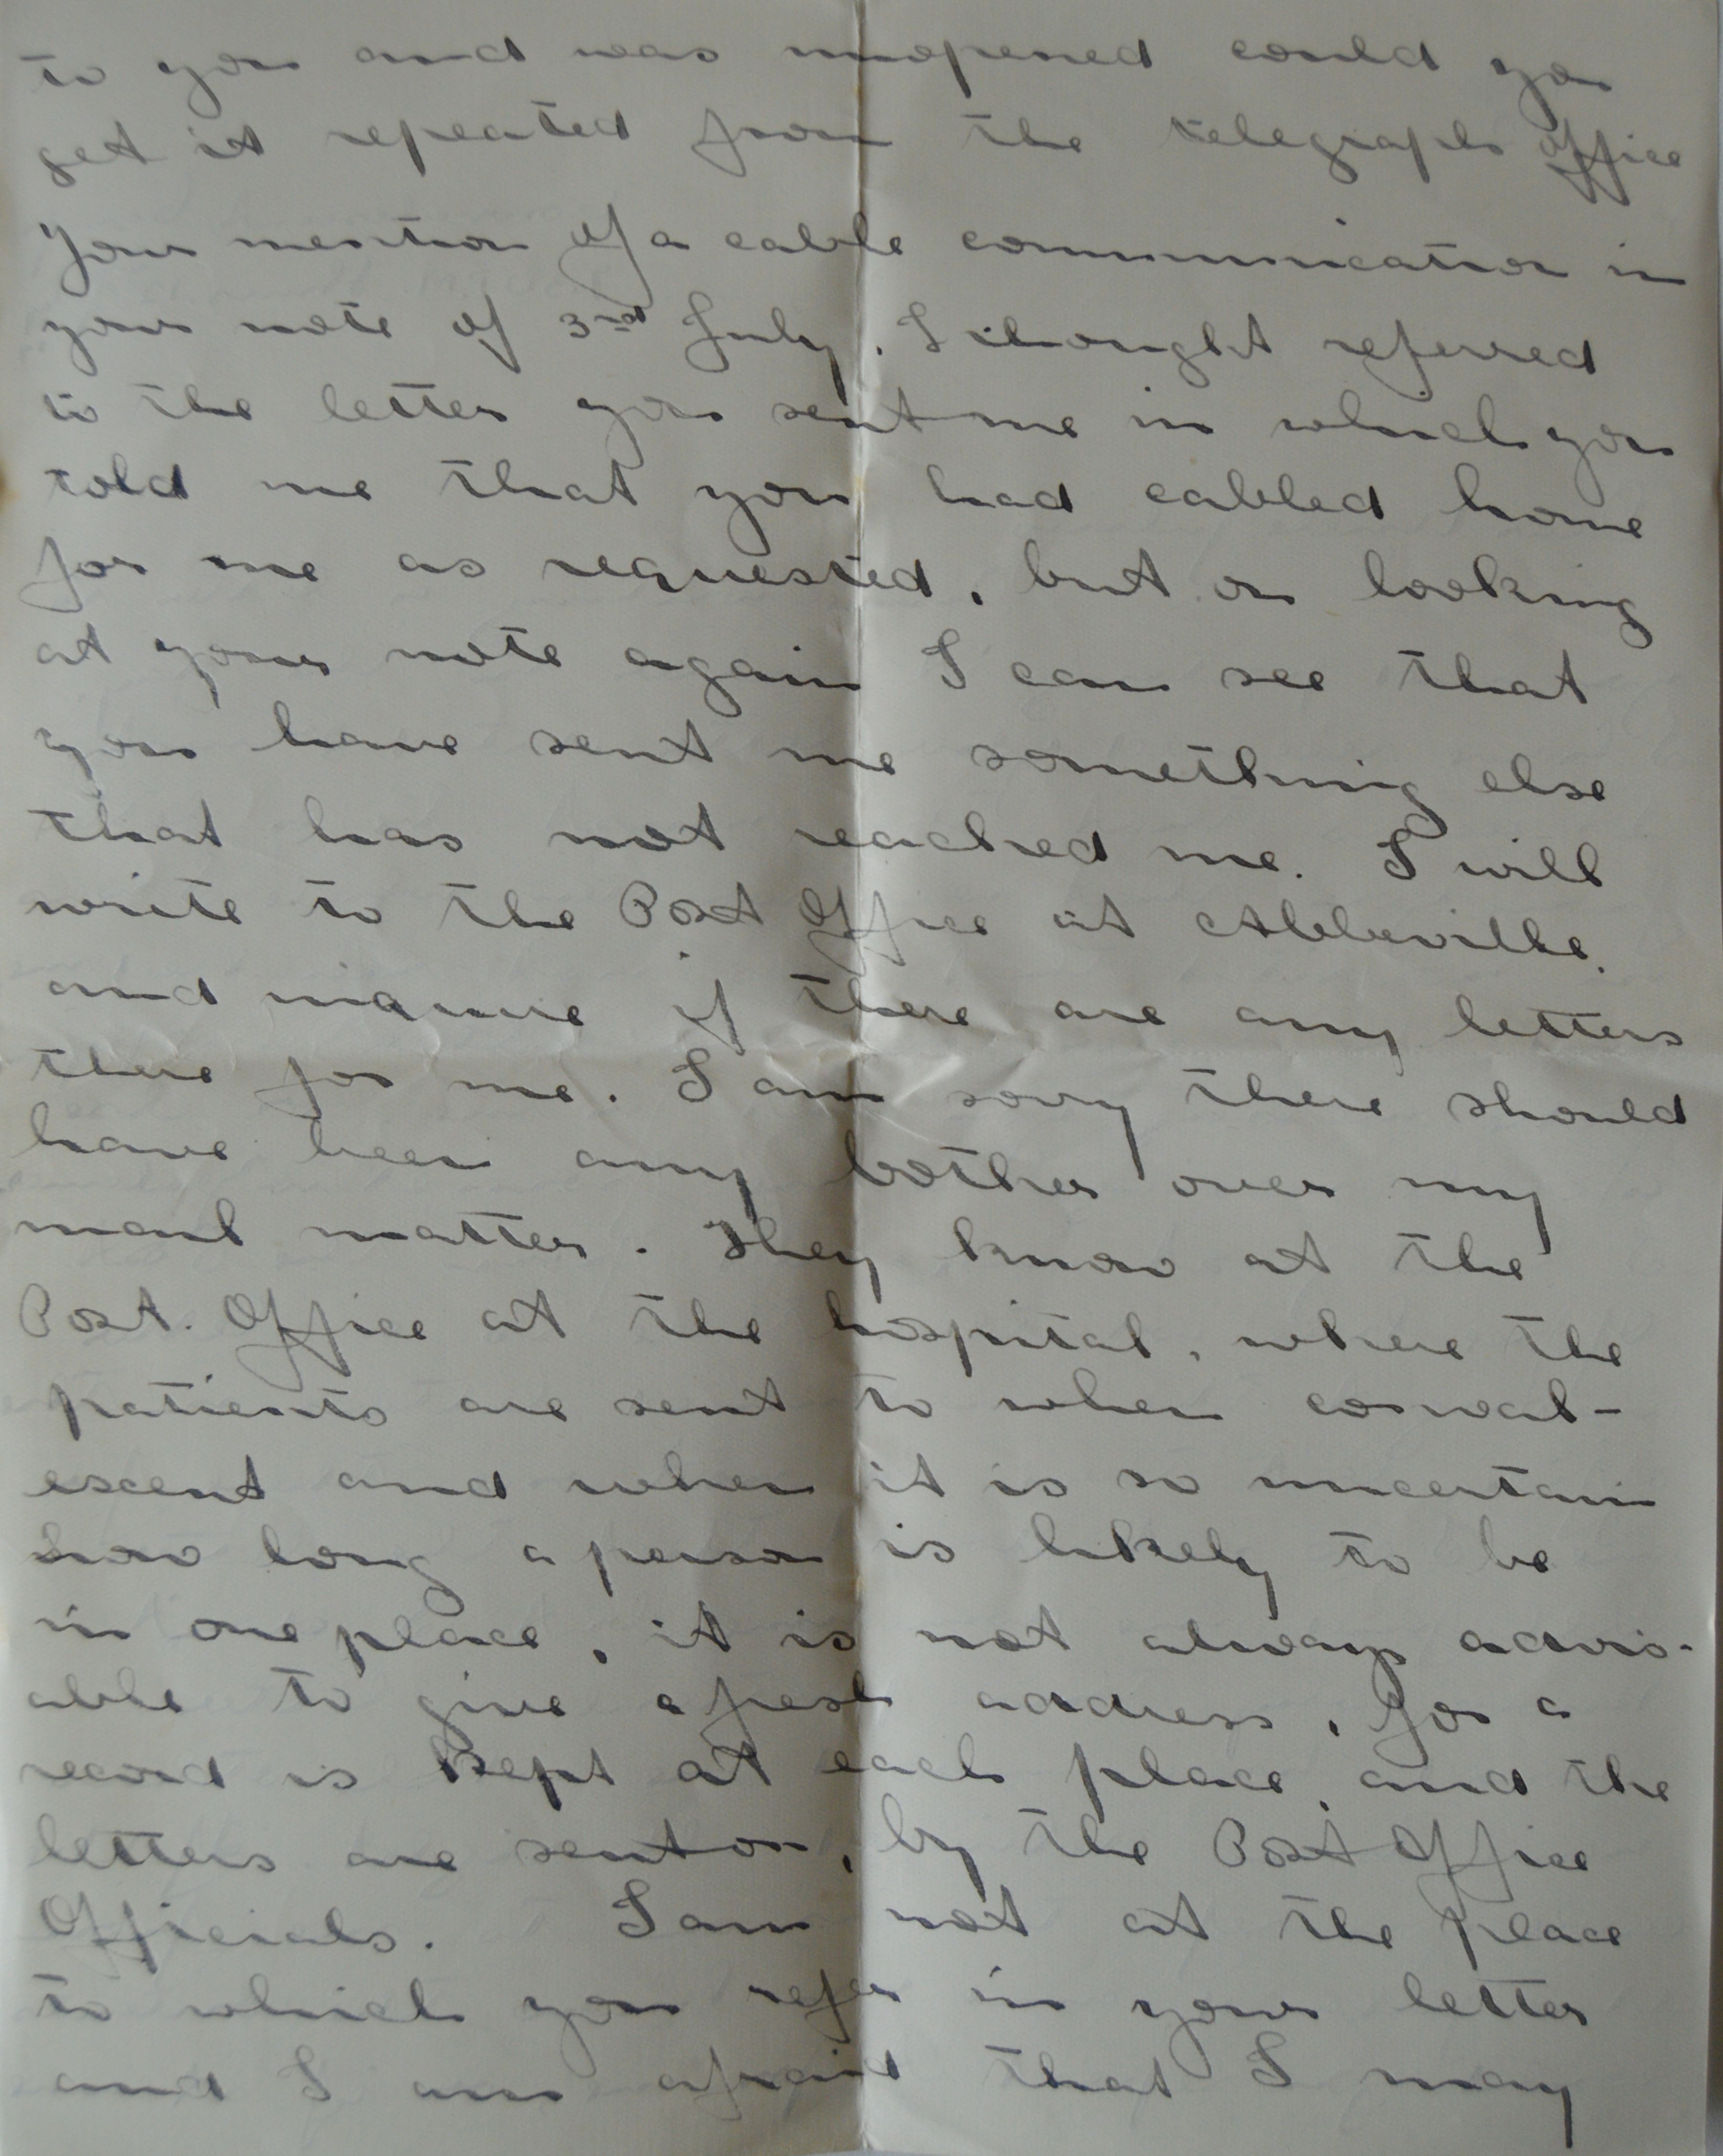 to you and was unopened could you
get it repeated from the telegraph office
Your mention of a cable communication in
your note of 3rd July. I thought referred
to the letter you sent me in which you
told me that you had cabled home
for me as requested, but on looking
at your note again I can see that
you have sent me something else
that has not reached me. I will
write to the Post Office at Abbeville.
and inquire if there are any letters
there for me. I am sorry there should
have been any bother over my
mail matter. They know at the
Post. Office at the hospital, where the
patients are sent to when conval-
escent and when it is so uncertain
how long a person is likely to be
in one place, it is not always advis-
able to give a fresh address, for a
record is kept at each place, and the
letters are sent on, by the Post Office
Officials. I am not at the place
to which you refer in your letter
and I am afraid that I may